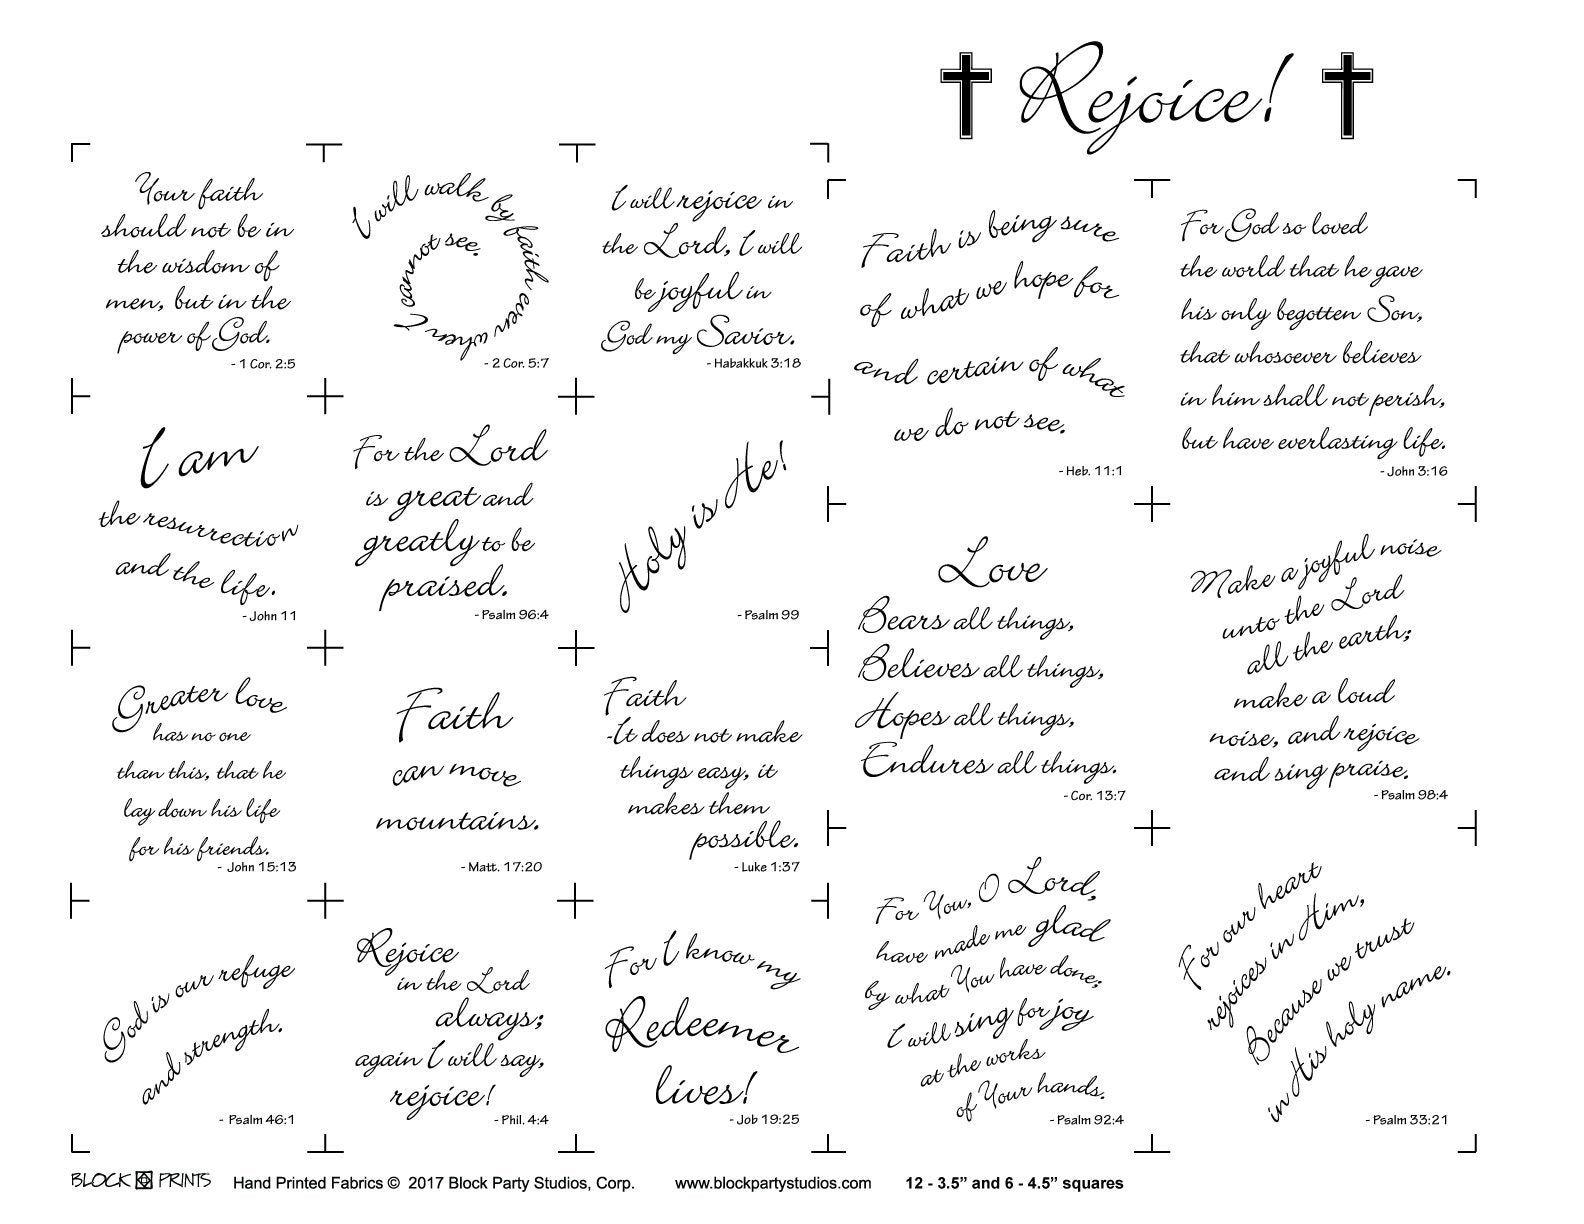 Rejoice!
Your faith
should not be in
the wisdom of
men, but in the
power of God.
- 1 Cor. 2:5
I will walk by faith even when I cannot see.
- 2 Cor. 5:7
I will rejoice in
the Lord, I will
be joyful in
God my Savior.
- Habakkuk 3:18
I am
the resurrection
and the life.
- John 11
For the Lord
is great and
greatly to be
praised.
- Psalm 96:4
Holy is He!
- Psalm 99
Greater love
has no one
than this, that he
lay down his life
for his friends.
- John 15:13
Faith
can move
mountains.
- Matt. 17:20
Faith
-It does not make
things easy, it
makes them
possible.
- Luke 1:37
God is our refuge
and strength.
- Psalm 46:1
Rejoice
in the Lord
always;
again I will say,
rejoice!
- Phil. 4:4
For I know my
Redeemer
lives!
- Job 19:25
Faith is being sure
of what we hope for
and certain of what
we do not see.
- Heb. 11:1
For God so loved
the world that he gave
his only begotten Son,
that whosoever believes
in him shall not perish,
but have everlasting life.
- John 3:16
Love
Bears all things,
Believes all things,
Hopes all things,
Endures all things.
- Cor. 13:7
Make a joyful noise
unto the Lord
all the earth;
make a loud
noise, and rejoice
and sing praise.
- Psalm 98:4
For You, O Lord,
have made me glad
by what You have done;
I will sing for joy
at the works
of Your hands.
- Psalm 92:4
For our heart
rejoices in Him,
Because we trust
in His holy name.
- Psalm 33:21
BLOCK PRINTS Hand Printed Fabrics © 2017 Block Party Studios, Corp. www.blockpartystudios.com 12 - 3.5” and 6 - 4.5” squares